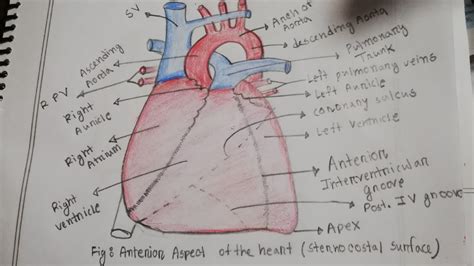 SV
Arch of
Aorta
descending Aorta
Ascending
Aorta
Pulmonary
Trunk
R PV
Left pulmonary veins
Left Auricle
Right
Auricle
coronary sulcus
Left ventricle
Right
Atrium
Anterior
Interventricular
groove
Right
ventricle
Post. IV groove
Apex
Fig: Anterior Aspect of the heart (sternocostal surface)